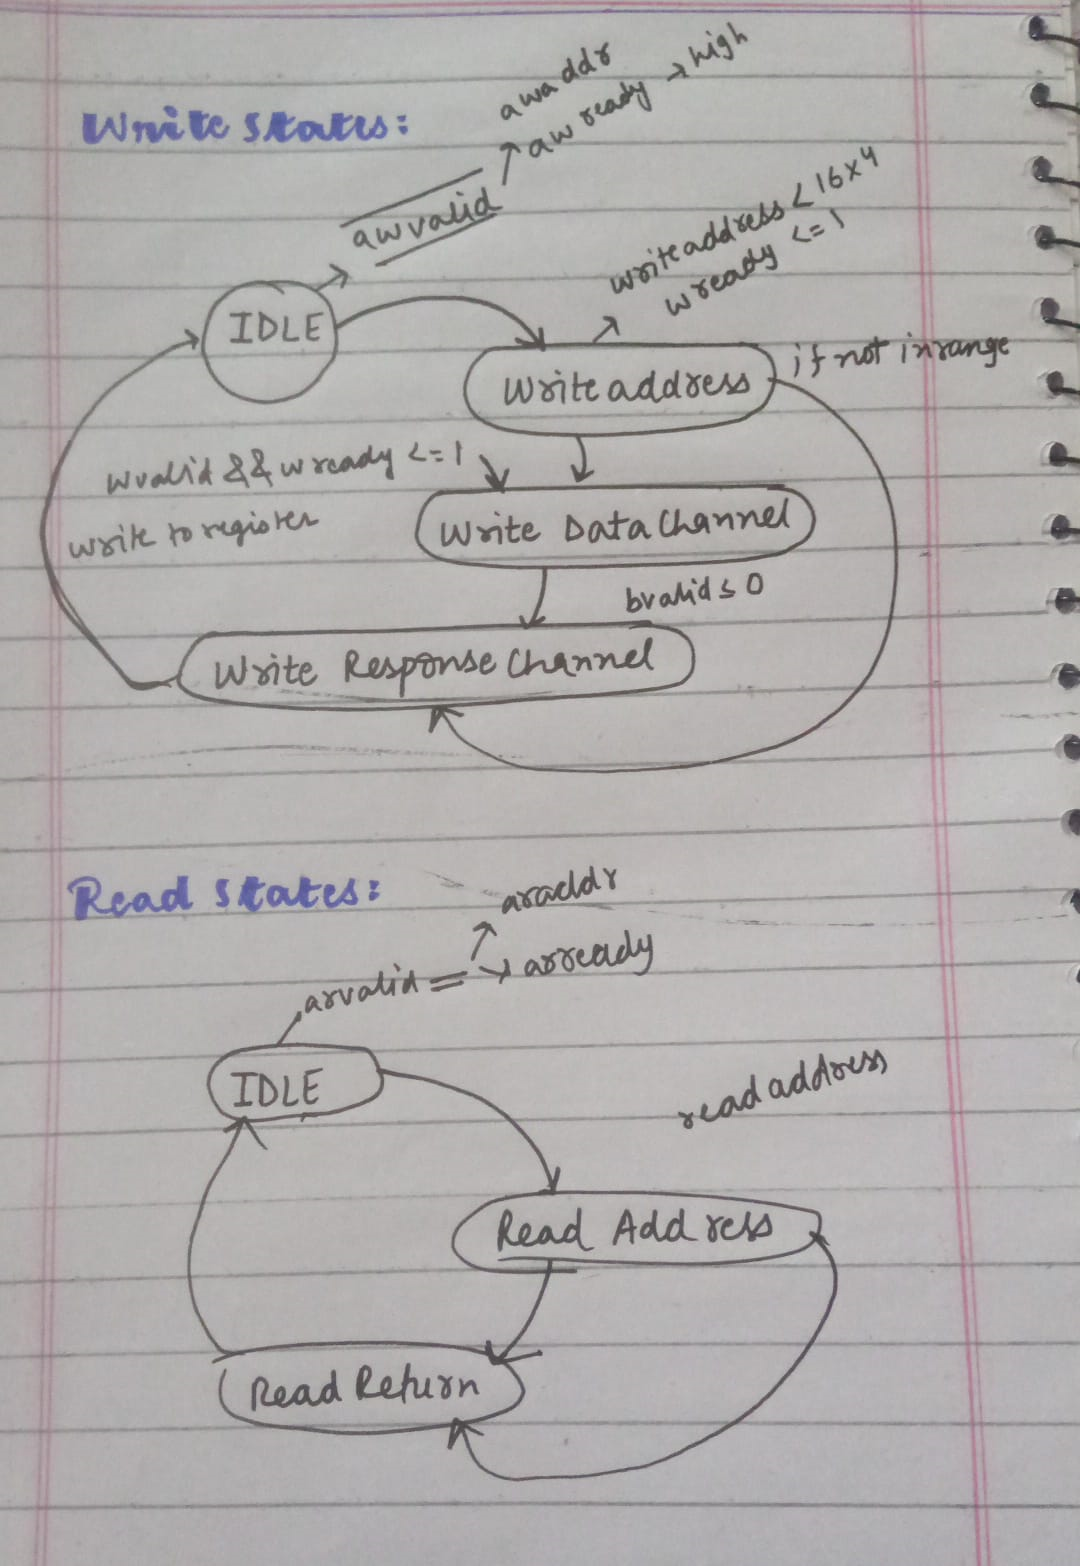 Write States:
awaddr
awready → high
awvalid
writeaddress < 16x4
wready <= 1
IDLE
if not in range
Write address
wvalid && wready <= 1
write to register
Write Data Channel
bvalid ≤ 0
Write Response Channel
Read States:
araddr
arready
arvalid =
IDLE
read address
Read Address
Read Return